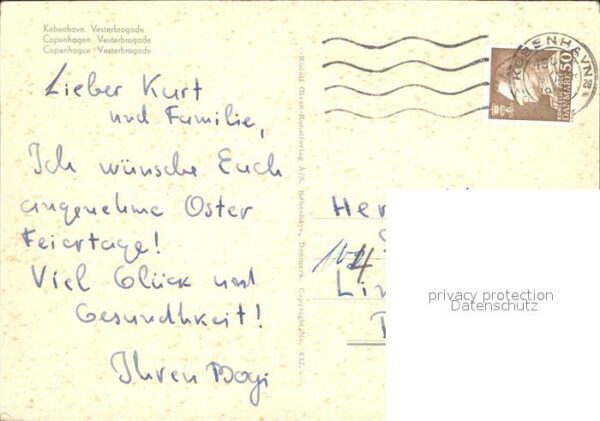 København. Vesterbrogade
Copenhagen. Vesterbrogade
Copenhague. Vesterbrogade
Lieber Kurt
und Familie,
Ich wünsche Euch
angenehme Oster
Feiertage!
Viel Glück und
Gesundhkeit!
Ihren Bogi
Rudolf Olsen-Kunstforlag A/S. København, Danmark. Copyright. No. 652.
KØBENHAVN
50
DANMARK
Her
102
4
Lin
privacy protection
Datenschutz